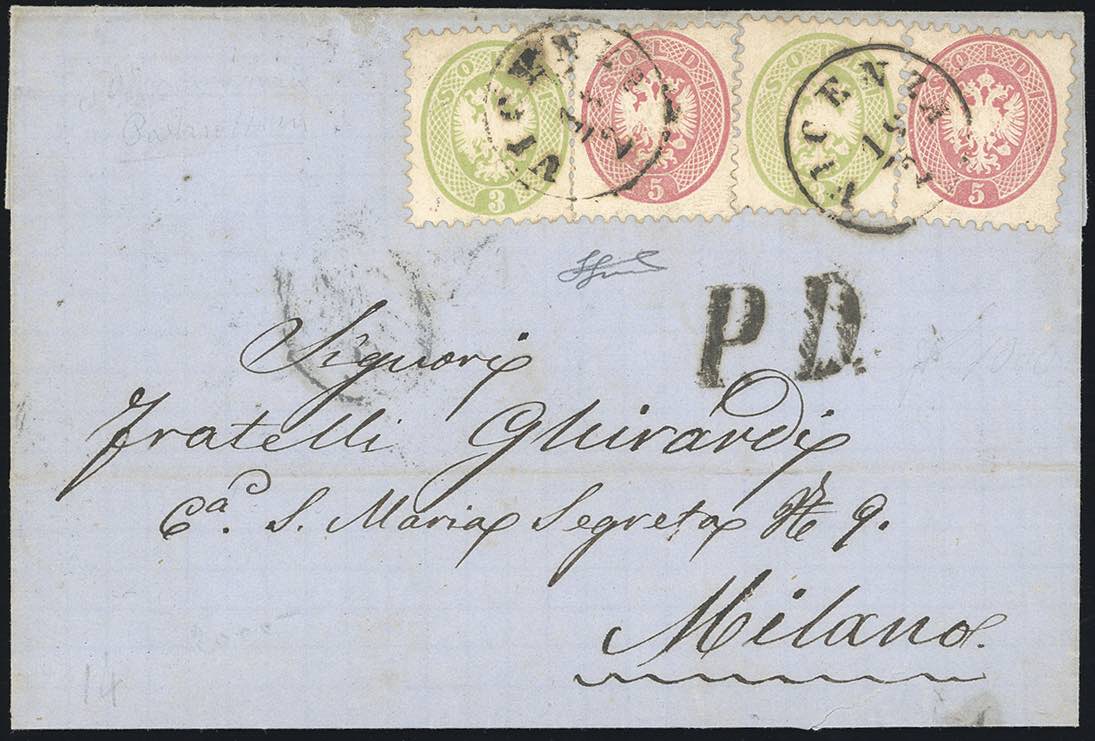 SOLDI 3
SOLDI 5
SOLDI 3
SOLDI 5
VICENZA
VICENZA
19
12
P.D.
Signori
Fratelli Ghirardi
Ca. S. Maria Segreta No 9.
Milano.
14